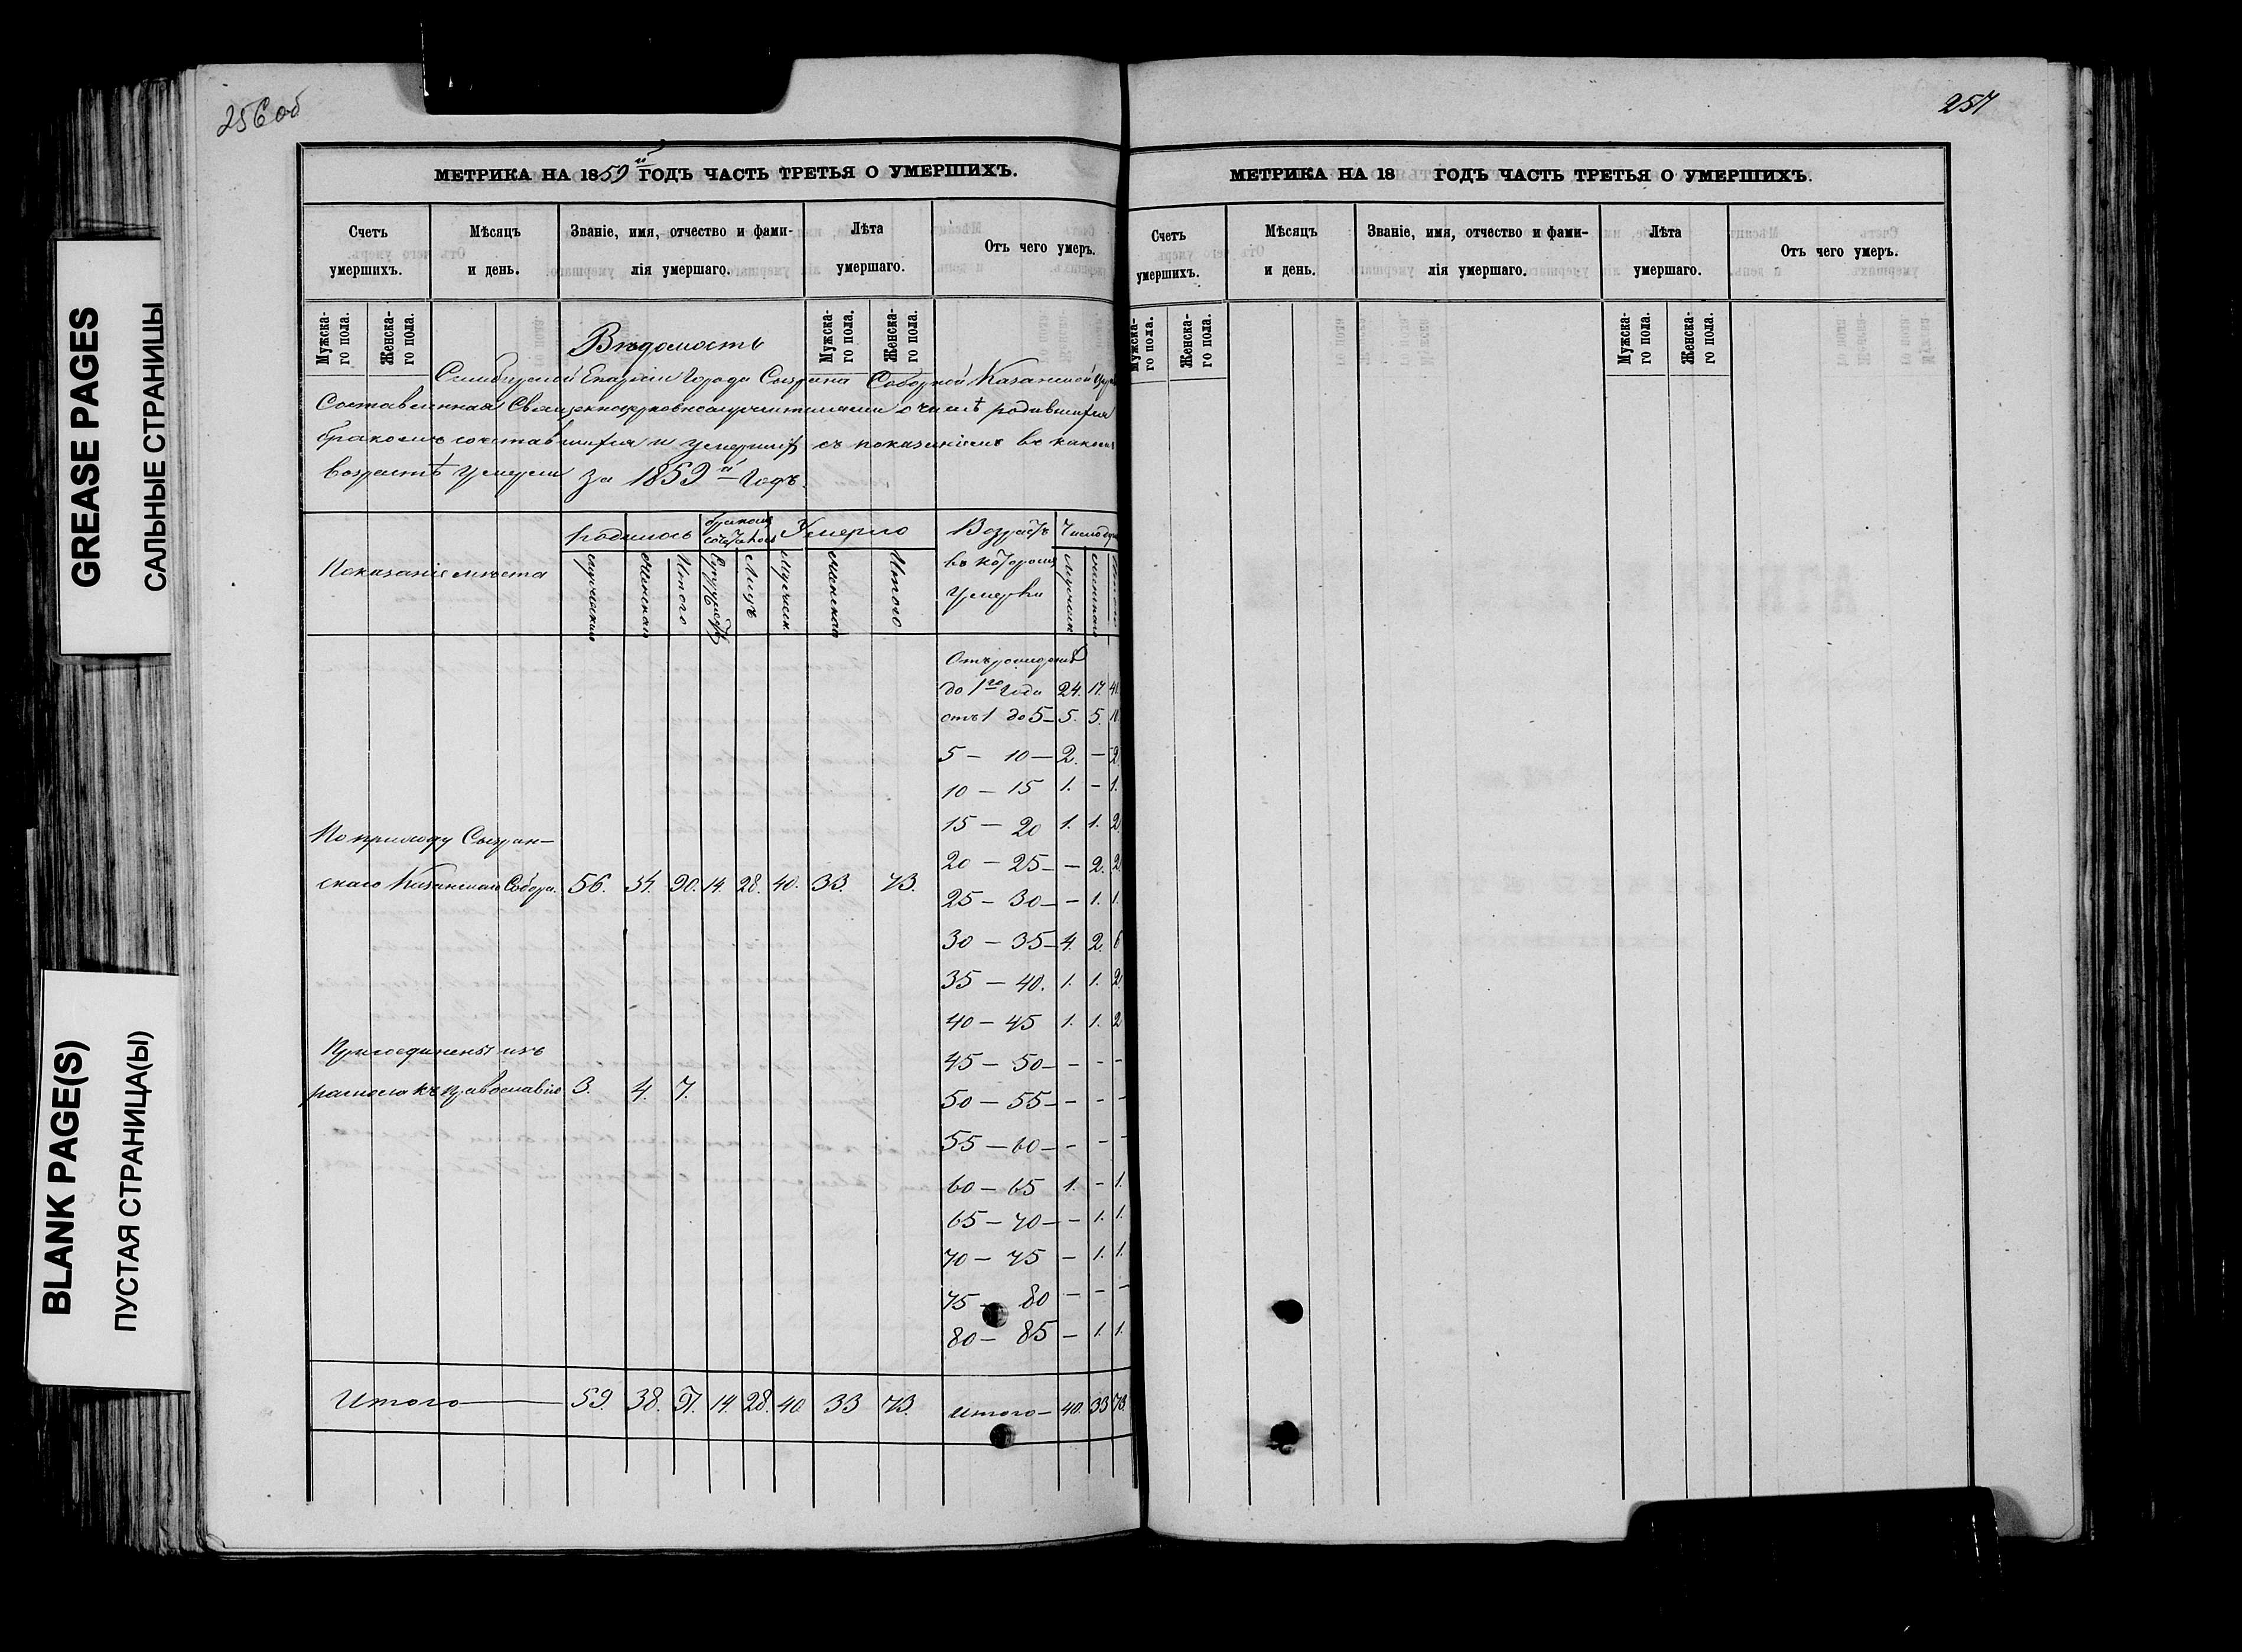 GREASE PAGES
САЛЬНЫЕ СТРАНИЦЫ
BLANK PAGE(S)
ПУСТАЯ СТРАНИЦА(Ы)
256 об
МЕТРИКА НА 1859й ГОДЪ ЧАСТЬ ТРЕТЬЯ О УМЕРШИХЪ.
Счетъ умершихъ.
Мѣсяцъ и день.
Званіе, имя, отчество и фамилія умершаго.
Лѣта умершаго.
Отъ чего умеръ.
Мужскаго пола.
Женскаго пола.
Мужскаго пола.
Женскаго пола.
Вѣдомость
Симбирской Епархіи Города Сызрана Соборной Казанской
Составленная Священноцерковнослужителями о числѣ родившихся
бракомъ сочетавшихся и умершихъ съ показаніемъ въ какомъ
возрастѣ умерли за 1859й Годъ.
Показаніе мѣста
родилось
бракомъ
Умерло
Возрастъ
въ которомъ
Умерли
Число
Мужескаго
Женскаго
Итого
Супружествъ
Лицъ
Мужеск.
Женскаго
Итого
Мужеск
Женскаго
Отъ рожденія
до 1го Года 24. 17. 41.
отъ 1 до 5 – 5. 5. 10.
5 – 10 – 2. – 2.
10 – 15 1. – 1.
15 – 20 1. 1. 2
20 – 25 – – 2. 2
25 – 30 – – 1. 1.
30 – 35 – 4. 2. 6
35 – 40. 1. 1. 2.
40 – 45 1. 1. 2
45 – 50 – – – –
50 – 55 – – – –
55 – 60 – – – –
60 – 65 1. – 1.
65 – 70 – – 1. 1.
70 – 75 – 1. 1.
75 – 80 – – –
80 – 85 – 1. 1.
По приходу Сызран–
скаго Казанскаго Собора. 56. 34. 90. 14. 28. 40. 33. 73.
Присоединены изъ
раскола къ православію 3. 4. 7.
Итого 59. 38. 97. 14. 28. 40. 33 73.
Итого – 40. 33 73.
257
МЕТРИКА НА 18 ГОДЪ ЧАСТЬ ТРЕТЬЯ О УМЕРШИХЪ.
Счетъ умершихъ.
Мѣсяцъ и день.
Званіе, имя, отчество и фамилія умершаго.
Лѣта умершаго.
Отъ чего умеръ.
Мужскаго пола.
Женскаго пола.
Мужскаго пола.
Женскаго пола.